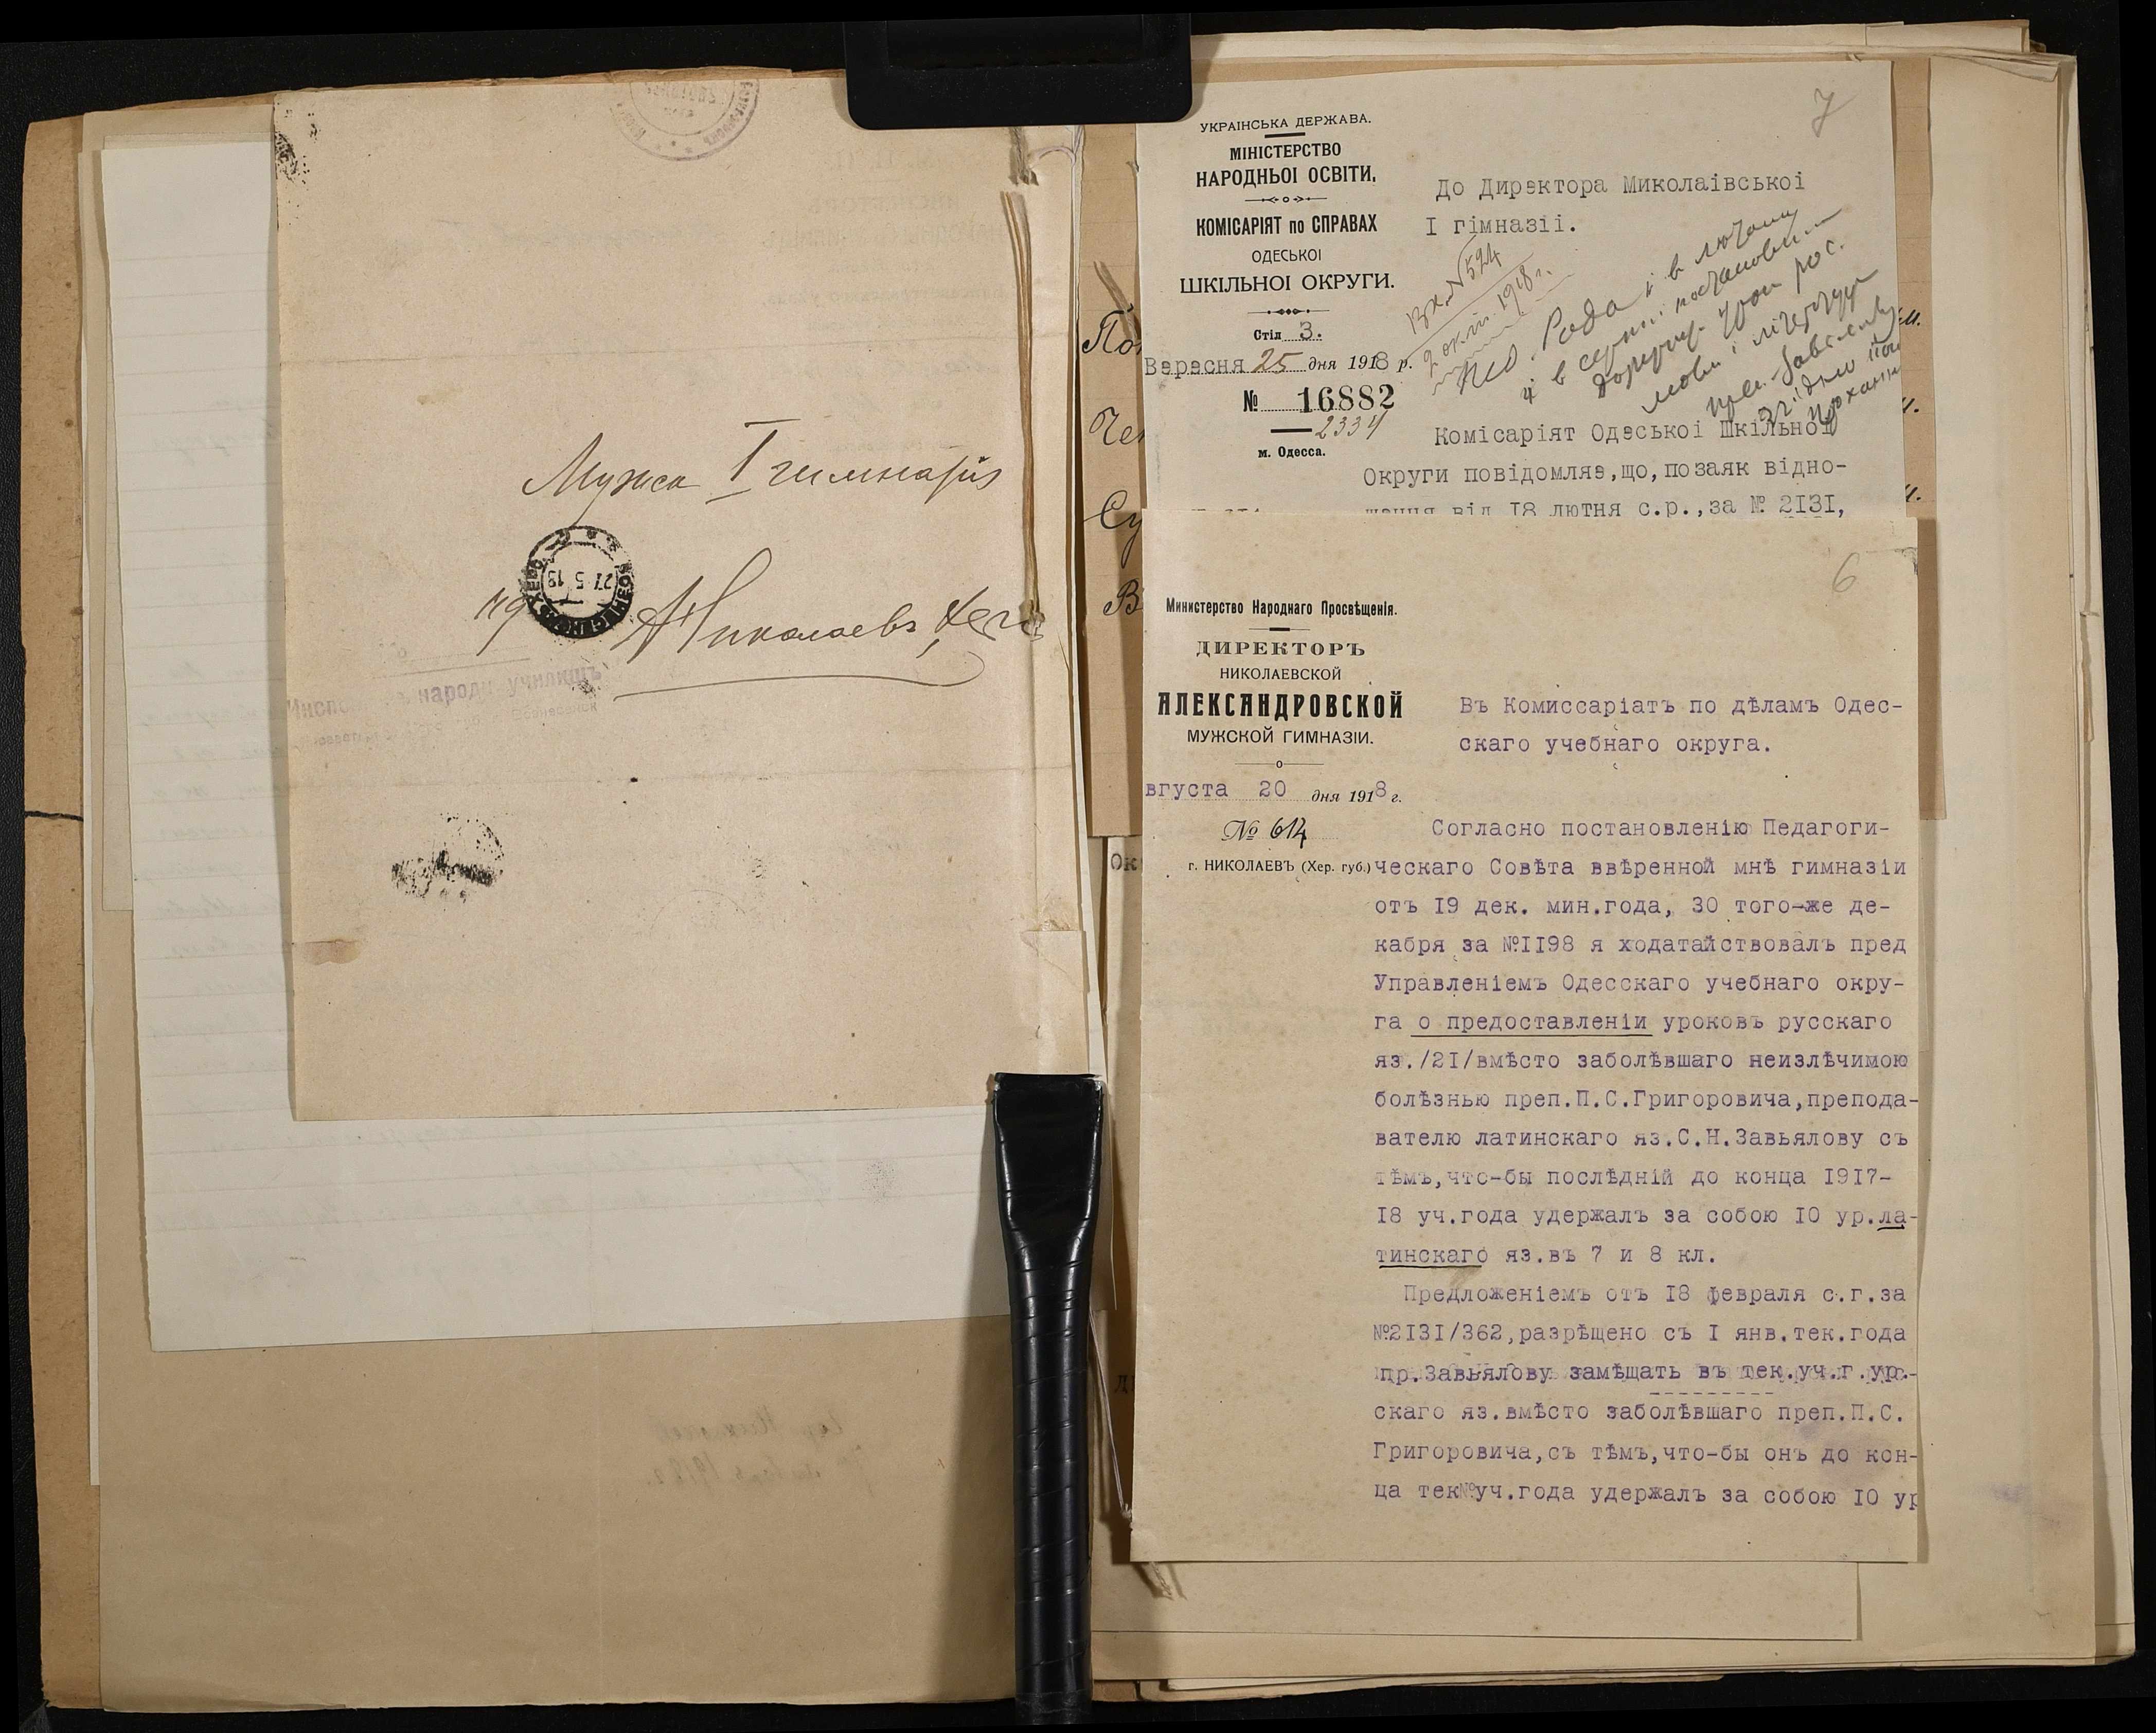 Мужск I гимназія
27 5 18
Николаевъ, Хер
Инспекторъ народн. училищъ
7
УКРАІНСЬКА ДЕРЖАВА.
МІНІСТЕРСТВО
НАРОДНЬОІ ОСВІТИ.
КОМІСАРІЯТ по СПРАВАХ
ОДЕСЬКОІ
ШКІЛЬНОІ ОКРУГИ.
Стіл 3.
Вересня 25 дня 1918 р.
№ 16882
2334
м. Одесса.
До Директора Миколаівськоі
І гімназіі.
Вх. №524
2 окт. 1918 г.
Рада і в лютому
й в серпні постановила
уроки рос.
мови і літератури
згідно його
прохання
Комісаріят Одеськоі Шкільноі
Округи повідомляе,що,позаяк відно-
шення від І8 лютня с.р.,за № 2ІЗІ,
6
Министерство Народнаго Просвѣщенія.
ДИРЕКТОРЪ
НИКОЛАЕВСКОЙ
АЛЕКСАНДРОВСКОЙ
МУЖСКОЙ ГИМНАЗІИ.
вгуста 20 дня 1918 г.
№ 614
г. НИКОЛАЕВЪ (Хер. губ.)
Въ Комиссаріатъ по дѣламъ Одес-
скаго учебнаго округа.
Согласно постановленію Педагоги-
ческаго Совѣта ввѣренной мнѣ гимназіи
отъ І9 дек. мин.года, 30 того-же де-
кабря за №ІІ98 я ходатайствовалъ пред
Управленіемъ Одесскаго учебнаго окру-
га о предоставленіи уроковъ русскаго
яз./2І/вмѣсто заболѣвшаго неизлѣчимою
болѣзнью преп.П.С.Григоровича,препода-
вателю латинскаго яз.С.Н.Завьялову съ
тѣмъ,что-бы послѣдній до конца І9І7-
І8 уч.года удержалъ за собою І0 ур.ла-
тинскаго яз.въ 7 и 8 кл.
Предложеніемъ отъ І8 февраля с.г.за
№2ІЗІ/362,разрѣшено съ І янв.тек.года
пр.Завьялову замѣщать въ тек.уч.г.ур.-
скаго яз.вмѣсто заболѣвшаго преп.П.С.
Григоровича,съ тѣмъ,что-бы онъ до кон-
ца тек№уч.года удержалъ за собою І0 ур